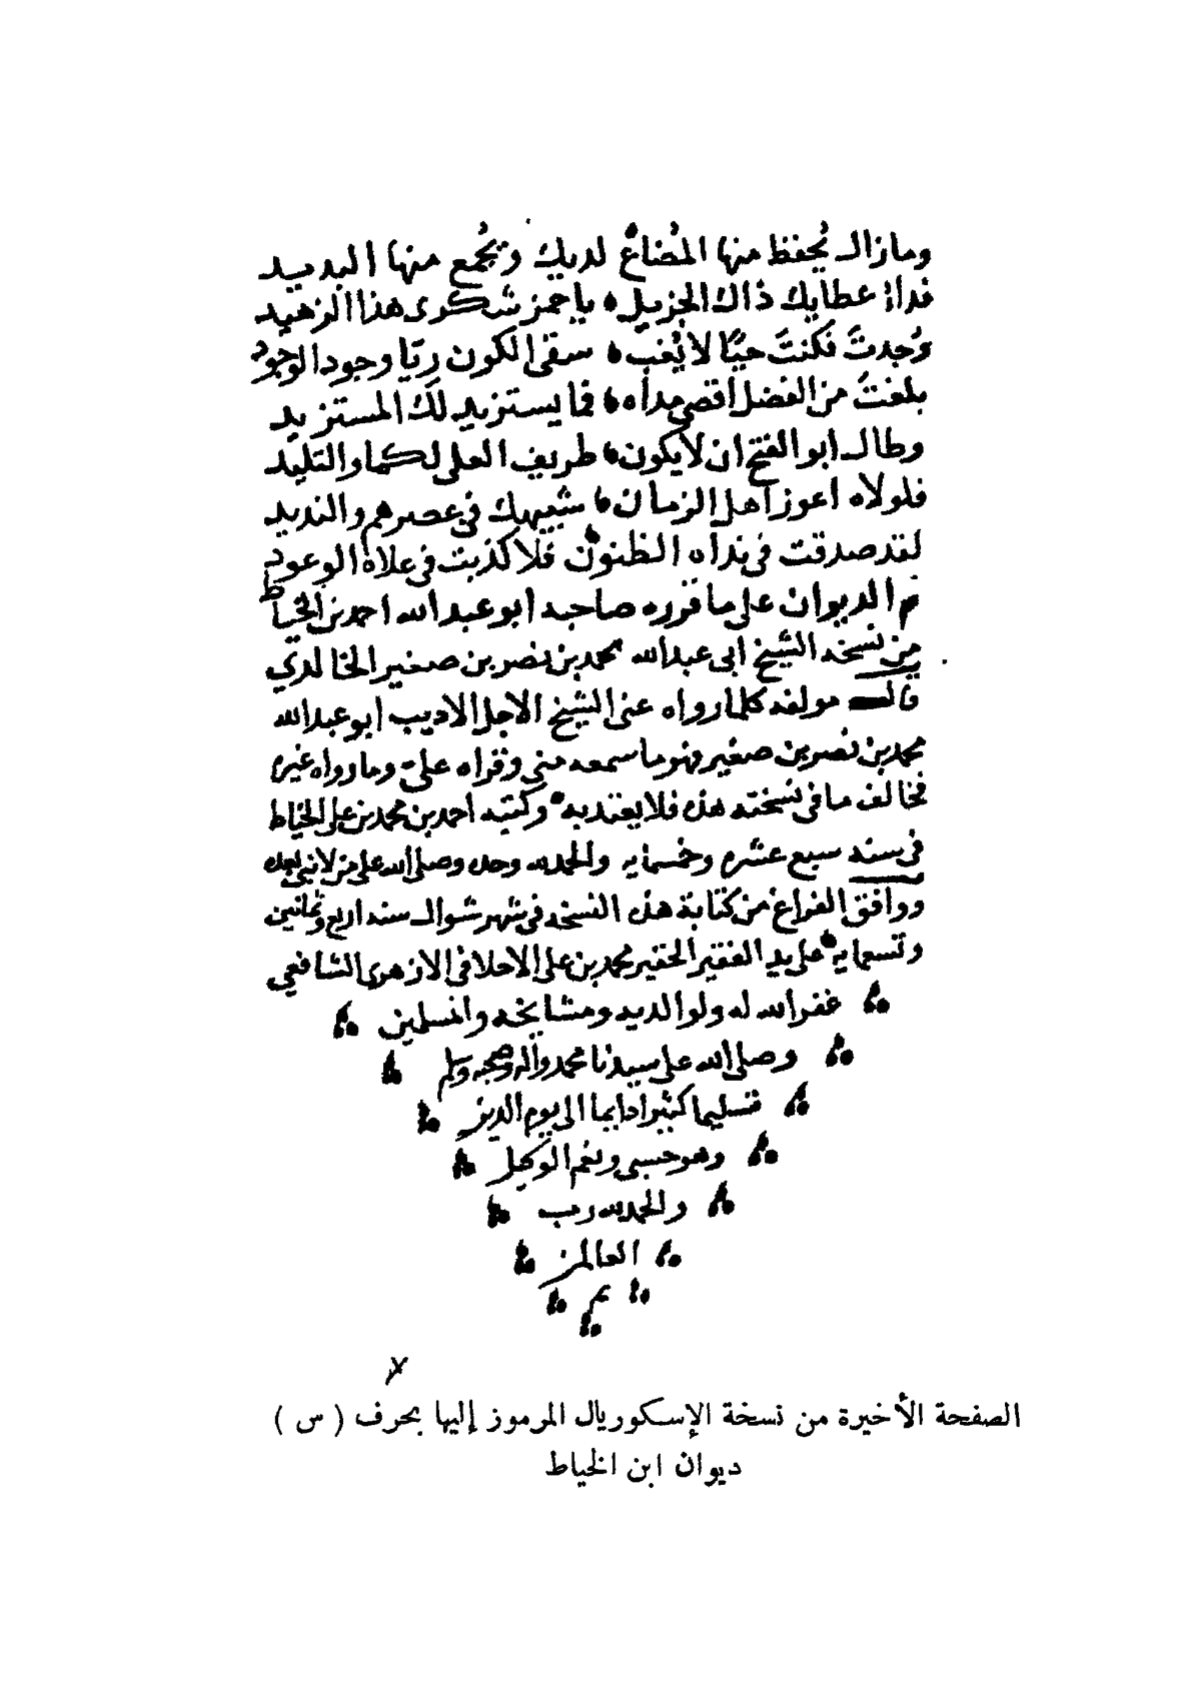 ومازال يُحفظ منها المُضاعُ لديك ويُجمع منها البديد
فداءُ عطايك ذاك الجزيل، ياحمز شكرى هذا الزهيد
وُجدتَ فكنتَ حيًا لا يُغبّ، سقى الكون ريّا وجود الوجود
بلغتَ من الفضل اقصى مداه، فما يستزيد لك المستزيد
وطال ابو الفتح ان لا يكون، طريف العلى لكما والتليد
فلولاه اعوز اهل الزمان، شبيهك في عصرهم والنديد
لقد صدقت في نداه الظنون فلا كذبت في علاه الوعود
تم الديوان على ما قرره صاحبه ابو عبد الله احمد بن الخياط
من نسخه الشيخ ابى عبد الله محمد بن نصر بن صغير الخالدي
قال مولفه كلما رواه عنى الشيخ الاجل الاديب ابو عبد الله
محمد بن نصر بن صغير فهو ما سمعه منى وقراه علىّ وما رواه غيره
مخالف ما فى نسخته هذه فلا يعتد به، وكتبه احمد بن محمد بن على الخياط
فى سنه سبع عشره وخمسمايه والحمد لله وحده وصلى الله على من لا نبى بعده
ووافق الفراغ من كتابة هذه النسخه فى شهر شوال سنه اربع وثمانين
وتسعمايه على يد الفقير الحقير محمد بن على الاحلافى الازهرى الشافعي
غفر الله له ولوالديه ومشايخه والمسلمين
وصلى الله على سيدنا محمد واله وصحبه وسلم
تسليما كثيرا دايما الى يوم الدين
وهو حسبى ونعم الوكيل
والحمد لله رب
العالمين
تم
الصفحة الأخيرة من نسخة الإسكوريال المرموز إليها بحرف ( س )
ديوان ابن الخياط